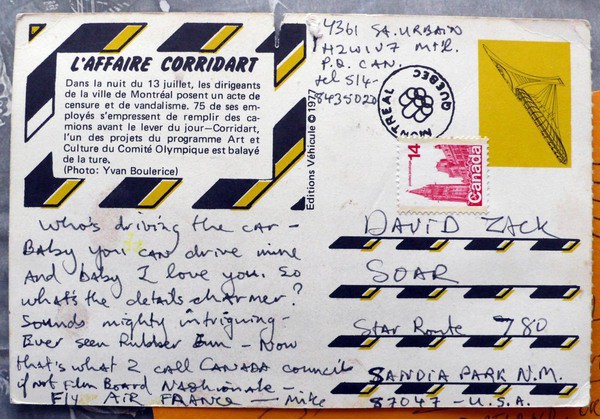 L'AFFAIRE CORRIDART
Dans la nuit du 13 juillet, les dirigeants
de la ville de Montréal posent un acte de
censure et de vandalisme. 75 de ses em-
ployés s'empressent de remplir des ca-
mions avant le lever du jour—Corridart,
l'un des projets du programme Art et
Culture du Comité Olympique est balayé
de la ture.
(Photo: Yvan Boulerice)
Editions Véhicule © 1977
4361 St. URBAIN
H2W1V7 MTL.
P.Q. CAN.
tel 514-
8435020
MONTREAL QUEBEC
14
Canada
Who's driving the car –
Baby you can drive mine
And baby I love you. So
what's the details charmer?
Sounds mighty intriguing –
Ever seen Rubber Gun – Now
that's what I call CANADA council
if not Film Board Nashionale –
Fly AIR FRANCE – Mike
DAVID ZACK
SOAR
Star Route 780
SANDIA PARK N.M.
87047 – U.S.A.